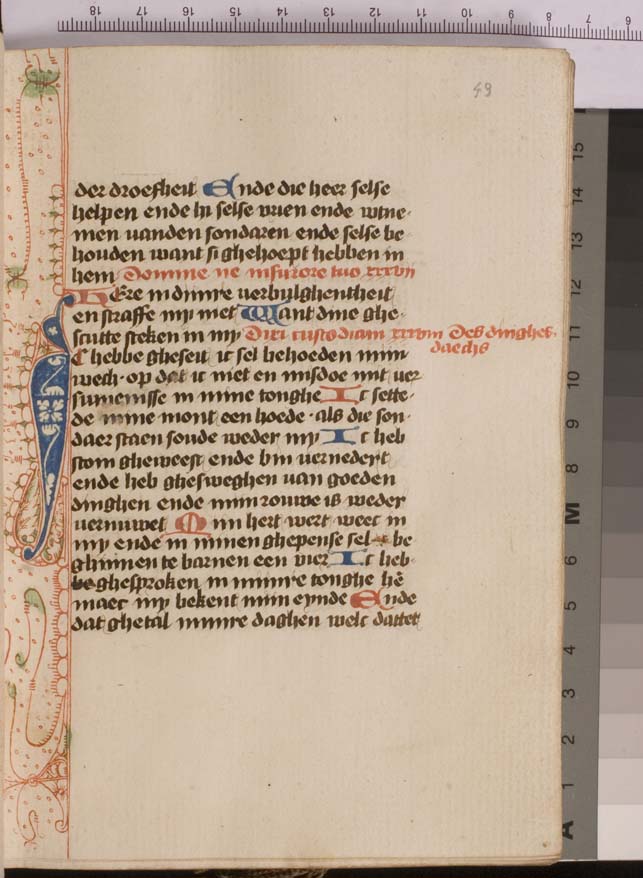 49
der droefheit Ende die heer selse
helpen ende hi selse vrien ende wtne-
men vanden sondaren ende selse be
houden want si ghehoept hebben in
hem Domine ne infurore tuo xxxvii
HEre in dinre verbulghentheit
en straffe my niet Want dine ghe-
scutte steken in my Dixi custodiam xxxviii Des dinghes-
daechs
Ic hebbe gheseit ic sel behoeden minen
wech · op dat ic niet en misdoe mit ver
sumenisse in mine tonghe Ic sette-
de mine mont een hoede · als die son-
daer staen soude weder my Ic heb
stom gheweest ende bin vernedert
ende heb ghesweghen van goeden
dinghen ende min rouwe is weder
vernuwet Min hert wert weec in
my ende in minen ghepense sel be
ghinnen te barnen een vier Ic heb-
be ghesproken in minre tonghe hē
maec my bekent min eynde Ende
dat ghetal minre daghen welc dattet